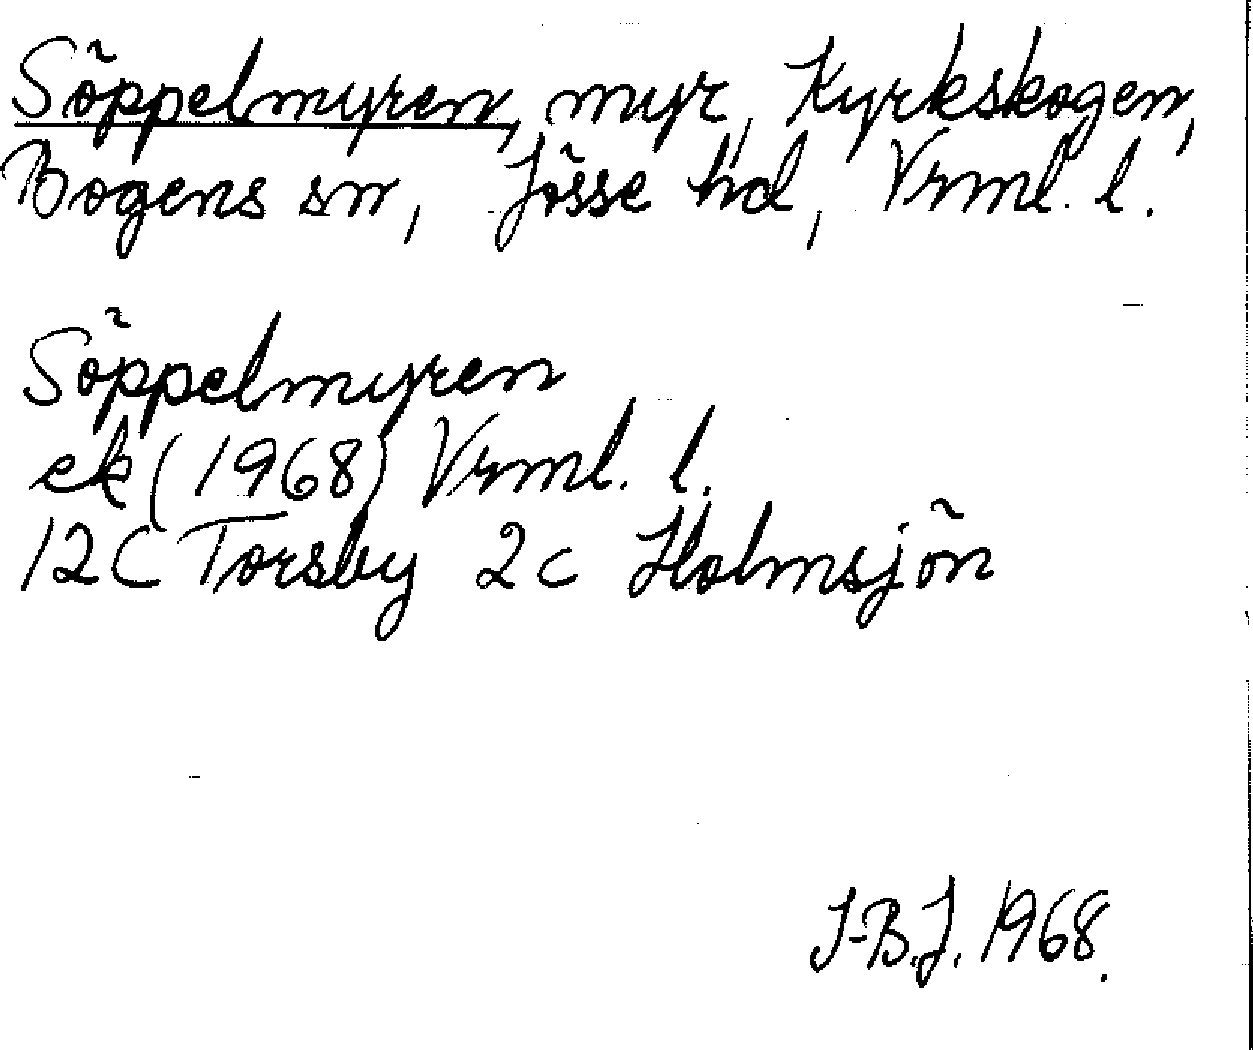 Söppelmyren, myr, Kyrkskogen,
Bogens sn, Jösse hd, Vrml. l.
Söppelmyren
ek (1968) Vrml. l.
12C Torsby 2c Holmsjön
J-B.J. 1968.